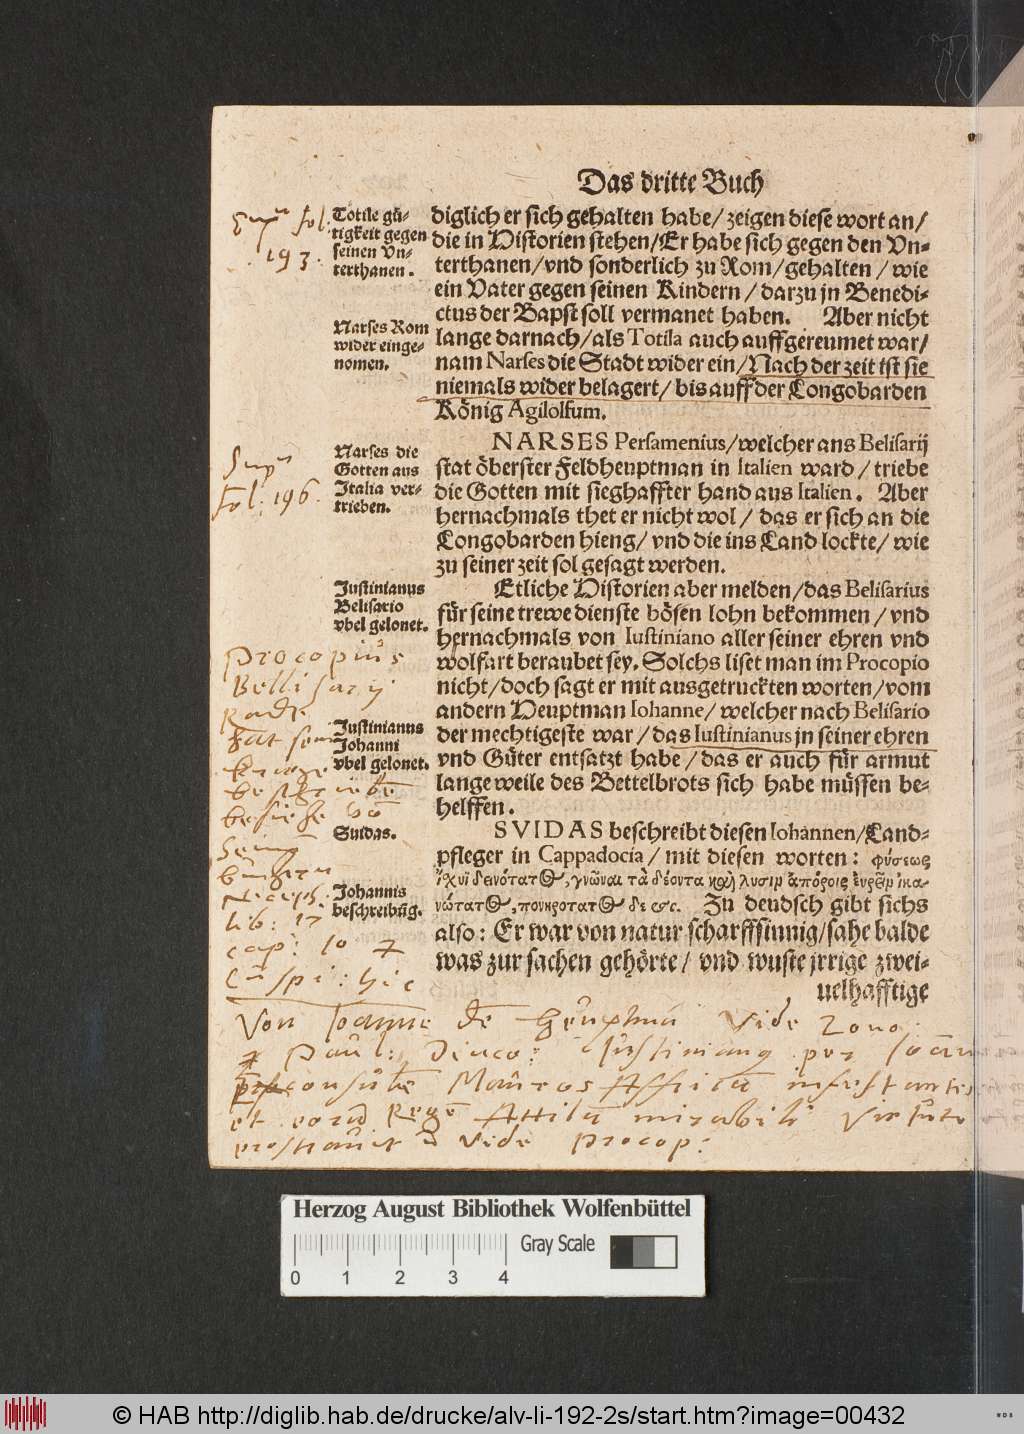 Das dritte Buch
diglich er sich gehalten habe/ zeigen diese wort an/
die in Historien stehen/Er habe sich gegen den Vn-
terthanen/vnd sonderlich zu Rom/gehalten / wie
ein Vater gegen seinen Kindern / darzu jn Benedi-
ctus der Bapst soll vermanet haben. Aber nicht
lange darnach/als Totila auch auffgereumet war/
nam Narses die Stadt wider ein/Nach der zeit ist sie
niemals wider belagert/ bis auff der Longobarden
König Agilolfum.
NARSES Persamenius/welcher ans Belisarij
stat öberster Feldheuptman in Italien ward / triebe
die Gotten mit sieghaffter hand aus Italien. Aber
hernachmals thet er nicht wol / das er sich an die
Longobarden hieng/ vnd die ins Land lockte/ wie
zu seiner zeit sol gesagt werden.
Etliche Historien aber melden/das Belisarius
für seine trewe dienste bösen lohn bekommen / vnd
hernachmals von Iustiniano aller seiner ehren vnd
wolfart beraubet sey. Solchs liset man im Procopio
nicht/doch sagt er mit ausgetruckten worten/vom
andern Heuptman Iohanne/ welcher nach Belisario
der mechtigeste war/ das Iustinianus jn seiner ehren
vnd Güter entsatzt habe / das er auch für armut
lange weile des Bettelbrots sich habe müssen be-
helffen.
SVIDAS beschreibt diesen Iohannen/Land-
pfleger in Cappadocia / mit diesen worten: φύσεως
ἰχυϊ δεινότατ&, γνῶναι τὰ δέοντα καὶ λυσιμ ἀπόροις ἐυρεῖμ ἱκα-
νώτατ&, πονηροτατ& δε &c. Zu deudsch gibt sichs
also: Er war von natur scharffsinnig/sahe balde
was zur sachen gehörte/ vnd wuste jrrige zwei-
uelhafftige
Totile gü-
tigkeit gegen
seinen Vn-
terthanen.
Narses Rom
wider einge-
nomen.
Narses die
Gotten aus
Italia ver-
trieben.
Justinianus
Belisario
vbel gelonet.
Justinianus
Johanni
vbel gelonet.
Suidas.
Johannis
beschreibūg.
fol.
193.
fol: 196.
Procopius
Bellisarij
lib: 17
cap: 10
Von Vide Zono:
Paul: Diaco: per
infestantes
et mirabili virtute
Vide Procop:
Herzog August Bibliothek Wolfenbüttel
Gray Scale
0 1 2 3 4
© HAB http://diglib.hab.de/drucke/alv-li-192-2s/start.htm?image=00432